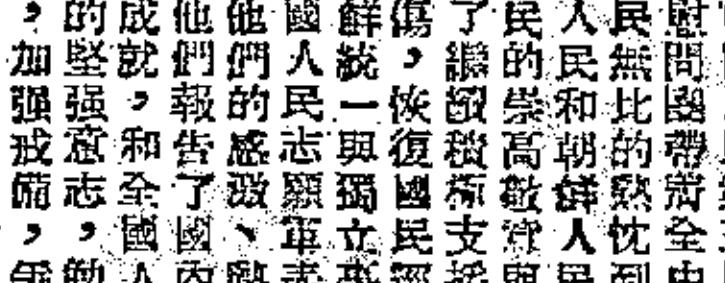 慰問團帶全中
民無比的熱忱到
人民和朝鮮人民
民的崇高敬意與
了繼續積極支援
傷，恢復國民經
鮮統一與獨立事
國人民志願軍志
他們的感激、熱
他們報告了國內
成就，和全國人
的堅强意志，勉
，加强戒備，